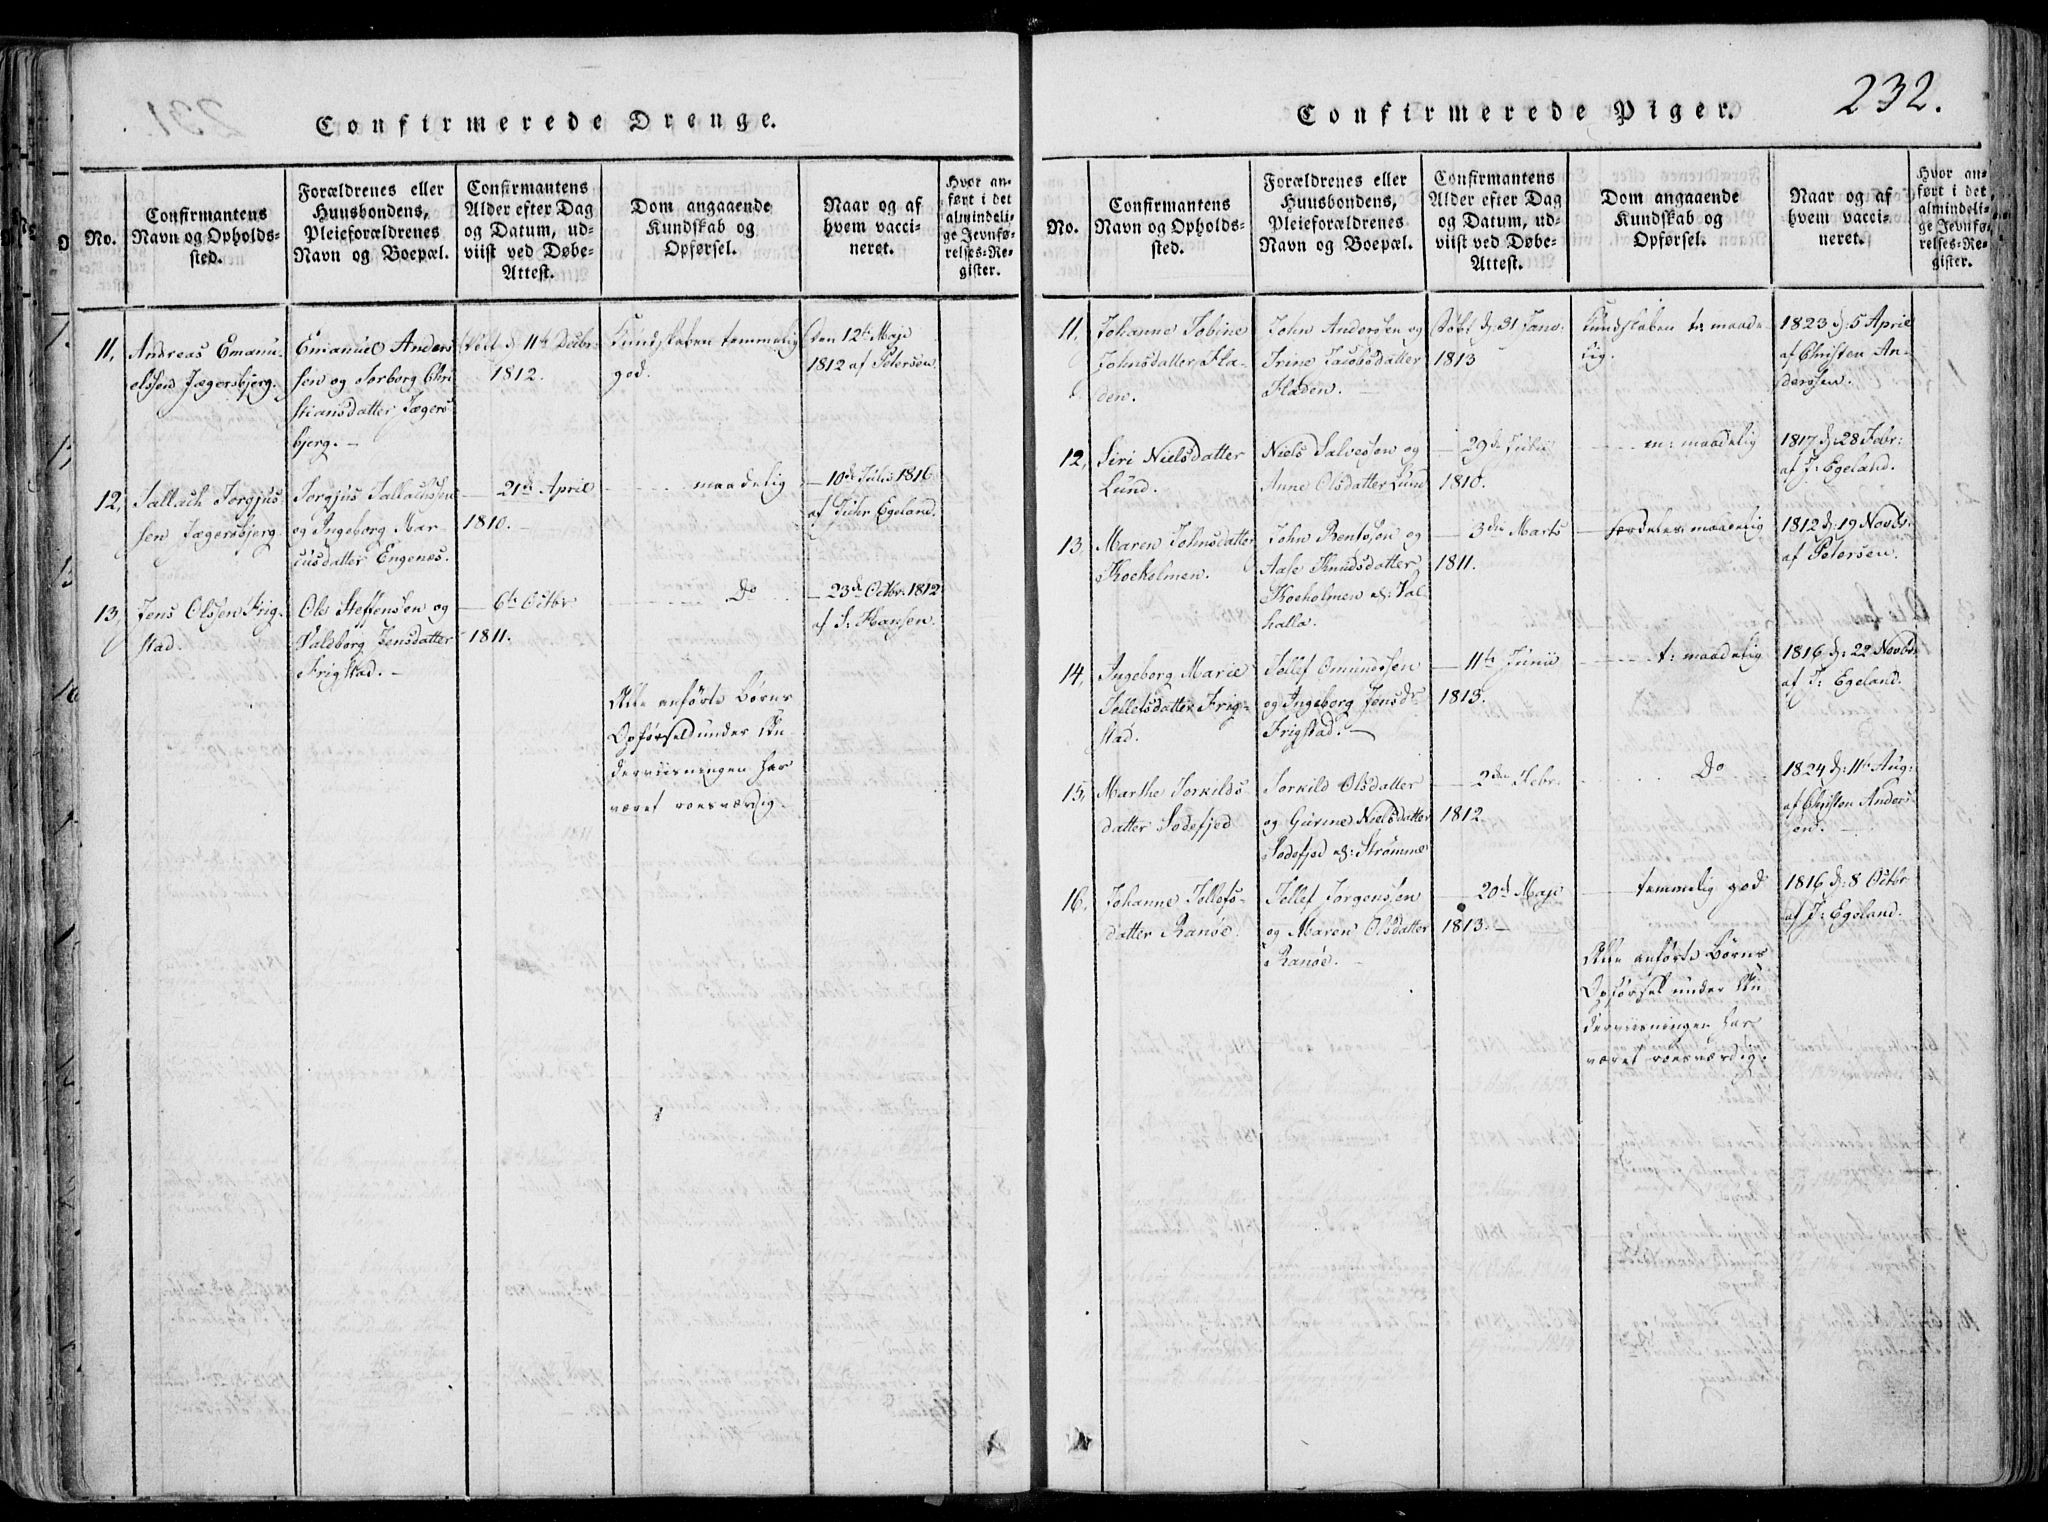 Confirmerede Drenge.
No.
Confirmantens
Navn og Opholds-
sted.
Forældrenes eller
Huusbondens,
Pleieforældrenes
Navn og Boepæl.
Confirmantens
Alder efter Dag
og Datum, ud-
viist ved Døbe-
Attest.
Dom angaaende
Kundskab og
Opførsel.
Naar og af
hvem vacci-
neret.
Hvor an-
ført i det
almindeli-
ge Jevnfø-
relses-Re-
gister.
11,
Andreas Emanu-
elssen Jægersbjerg.
Emanuel Anders
sen og Torborg Chri
stiansdatter Jægers
bjerg. —
Døbt d. 11te Decbr
1812.
Kundskaben temmelig
god.
Den 12te Maji
1812 af Petersen
12,
Tallach Torgjus
sen Jægersbjerg
Torgjus Tallachsen
og Ingeborg Mar-
cusdatter Engenes.
— 21de April
1810.
maadelig
— 10de Julii 1816
af Egeland.
13,
Jens Olssen Frig-
stad.
Ole Steffenssen og
Valborg Jensdatter
Frigstad. —
— 6te Octbr
1811.
Do
— 23de Octbr. 1812
af S: Hansen.
Alle anførte Børns
Opførsel under Un
derviisningen har
været roesværdig.
232.
Confirmerede Piger.
No.
Confirmantens
Navn og Opholds-
sted.
Forældrenes eller
Huusbondens,
Pleieforældrenes
Navn og Boepæl.
Confirmantens
Alder efter Dag
og Datum, ud-
viist ved Døbe-
Attest.
Dom angaaende
Kundskab og
Opførsel.
Naar og af
hvem vacci-
neret.
Hvor an-
ført i det
almindeli-
ge Jevnfø-
relses-Re-
gister.
11,
Johanne Tobine
Johnsdatter Fla-
den.
John Anderssen og
Trine Jacobsdatter
Fladen. —
Døbt d. 31 Janv
1813
Kundskaben t: maade-
lig.
1823 d: 5 April
af Christen An-
derssen.
12,
Siri Nielsdatter
Lund.
Niels Salvessen og
Anne Olsdatter Lund
— 29de Julii
1810.
m: maadelig
1817 d: 28 Febr:
af T: Egeland.
13
Maren Johnsdatter
Koeholmen.
John Bentssen og
Aase Knudsdatter
Koeholmen v: Val-
halla.
— 3die Marts
1811.
maadelig
1812 d: 19 Novbr.
af Petersen.
14,
Ingeborg Marie
Tellefsdatter Frig-
stad.
Tellef Omundssen
og Ingeborg Jensdr
Frigstad. —
— 11te Junii
1813.
t: maadelig
1816 d: 22 Novbr
af T: Egeland.
15,
Marthe Torkilds
datter Sodefjed
Torkild Olsdatter
og Gurine Nielsdatter
Sodefjed v: Strømme
— 2den Febr.
1812
Do
1824 d: 11te Aug:
af Christen Anders
sen. —
16,
Johanne Tellefs-
datter Ranøe.
Tellef Jørgenssen
og Maren Olsdatter
Ranøe. —
— 20de Maji
1813. —
temmelig god
1816 d: 8 Octbr
af T: Egeland.
Alle anførte Børns
Opførsel under Un
derviisningen har
været roesværdig.